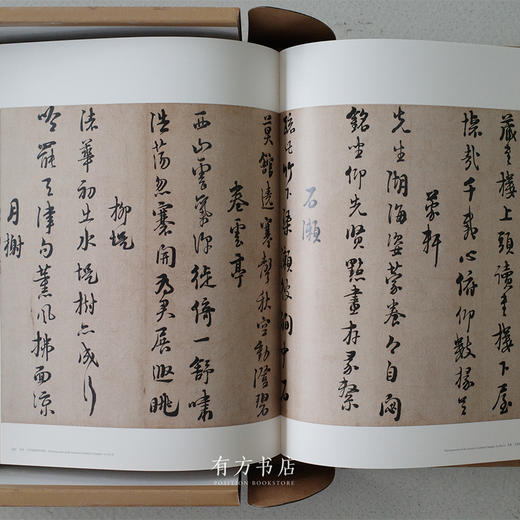 藏書樓上頭讀書樓下屋
懷哉千載心俯仰數椽足
蒙軒
先生湖海姿蒙養今自閟
銘坐仰先賢點畫存彖繫
石瀨
疏此竹下渠漱彼澗中石
莫館遶寒聲秋空動澄碧
卷雲亭
西山雲氣深徙倚一舒嘯
浩蕩忽褰開為君展遐眺
柳堤
渚華初出水堤樹亦成行
吟罷天津句薰風拂面涼
月榭
有方书店
POSITION BOOKSTORE